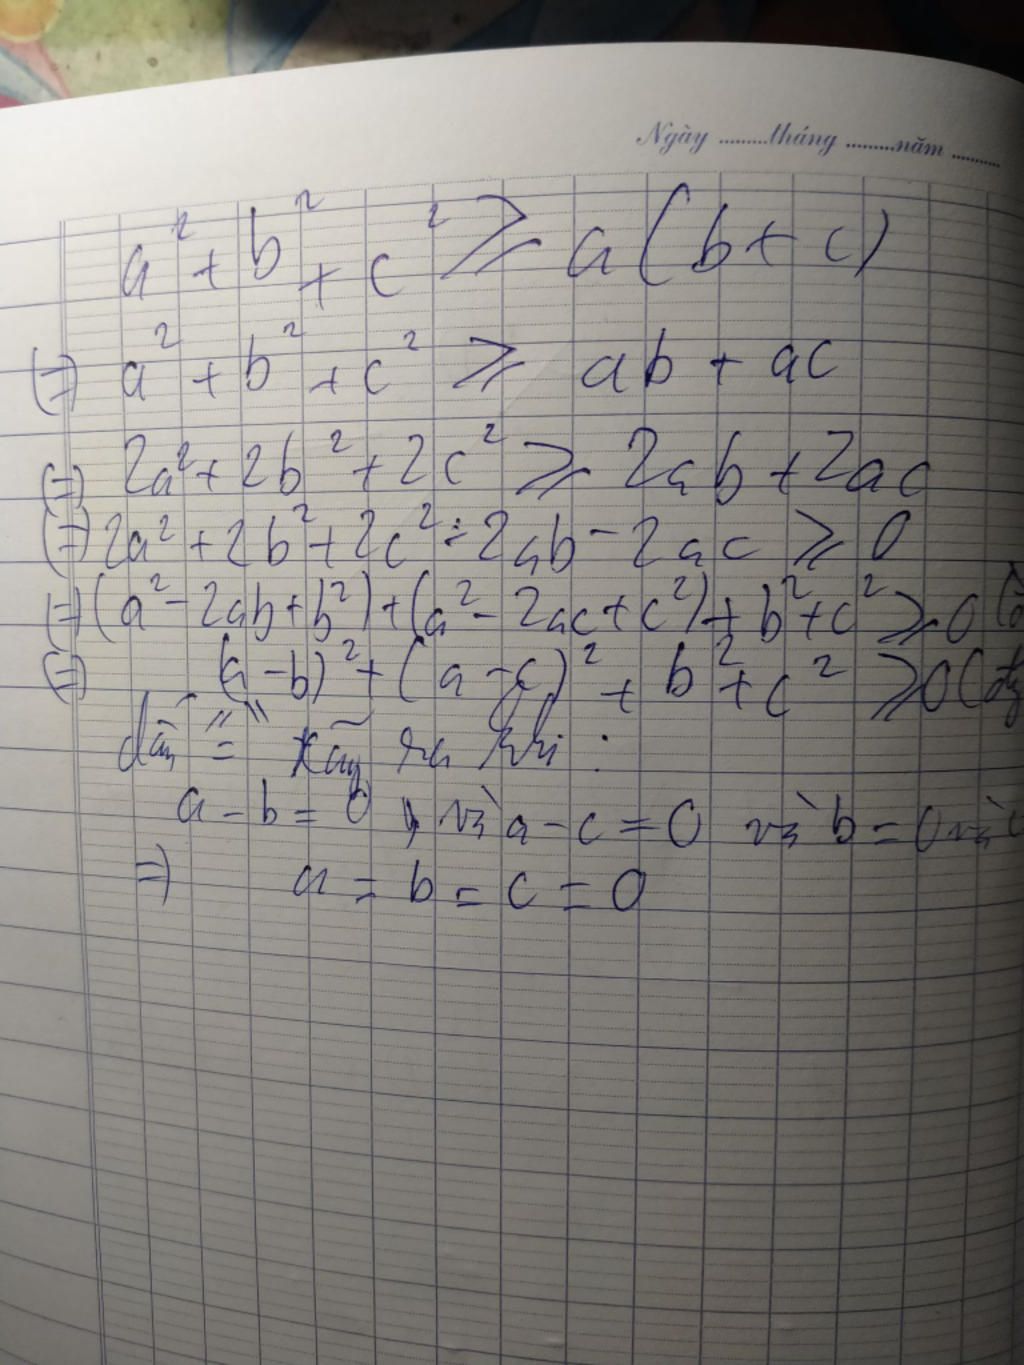 Ngày ........tháng ........năm ........
a² + b² + c² ⩾ a(b + c)
(=) a² + b² + c² ⩾ ab + ac
(=) 2a² + 2b² + 2c² ⩾ 2ab + 2ac
(=) 2a² + 2b² + 2c² - 2ab - 2ac ⩾ 0
(=) (a² - 2ab + b²) + (a² - 2ac + c²) + b² + c² ⩾ 0
(=) (a - b)² + (a - c)² + b² + c² ⩾ 0
dấu "=" xãy ra khi :
a - b = 0 và a - c = 0 và b = 0 và c
=) a = b = c = 0